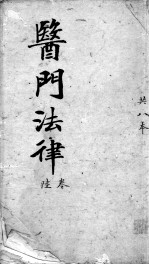 共八本
醫門法律
卷陸